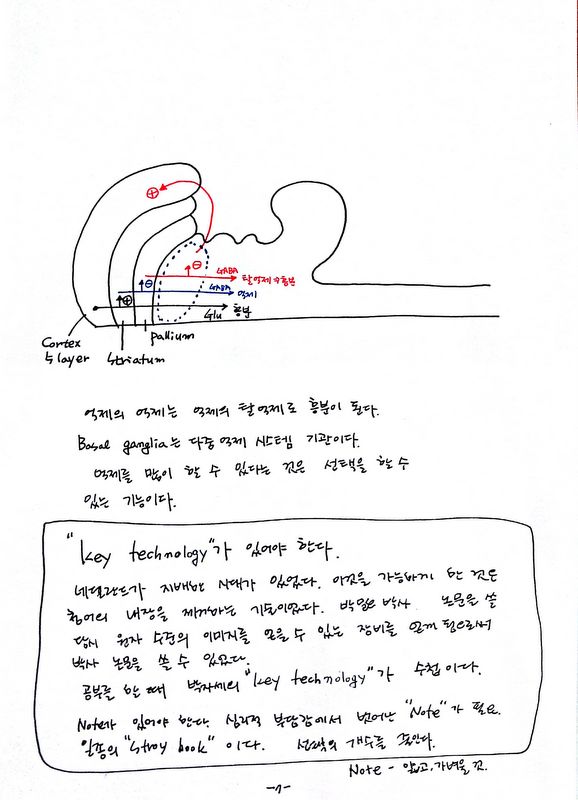 GABA
탈억제⇒흥분
GABA
억제
Glu
흥분
Cortex
5 layer
Striatum
pallium
억제의 억제는 억제의 탈억제로 흥분이 된다.
Basal ganglia는 다중 억제 시스템 기관이다.
억제를 많이 할 수 있다는 것은 선택을 할 수
있는 기능이다.
"key technology"가 있어야 한다.
네덜란드가 지배한 시대가 있었다. 이것을 가능하게 한 것은
청어의 내장을 제거하는 기술이었다. 박사 논문을 쓸
당시 원자 수준의 이미지를 얻을 수 있는 장비를 얻게 됨으로써
박사 논문을 쓸 수 있었다.
공부를 할 때 박자세의 "key technology"가 수첩이다.
Note가 있어야 한다. 심리적 부담감에서 벗어난 "Note"가 필요.
일종의 "Stroy book" 이다. 선택의 개수를 줄인다.
Note - 얇고, 가벼울 것.
-7-